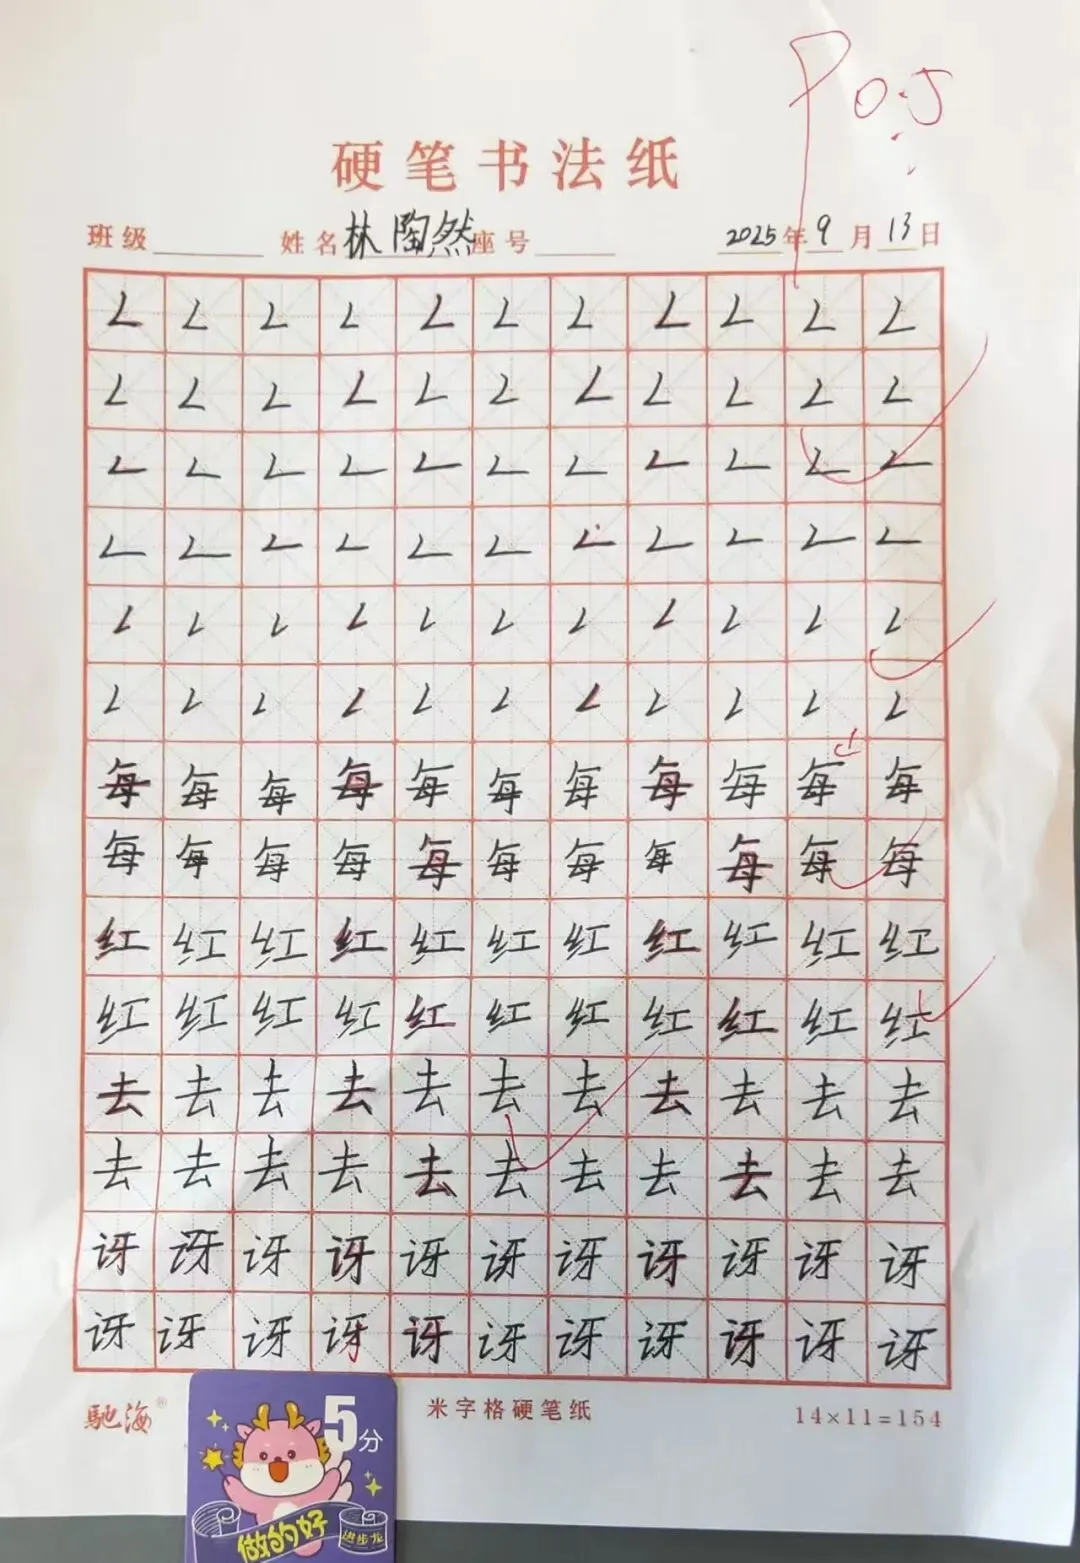 90.5
硬笔书法纸
班级 姓名 林陶然 座号 2025年9月13日
𠃊 𠃊 𠃊 𠃊 𠃊 𠃊 𠃊 𠃊 𠃊 𠃊 𠃊
𠃊 𠃊 𠃊 𠃊 𠃊 𠃊 𠃊 𠃊 𠃊 𠃊 𠃊
𠃊 𠃊 𠃊 𠃊 𠃊 𠃊 𠃊 𠃊 𠃊 𠃊 𠃊
𠃊 𠃊 𠃊 𠃊 𠃊 𠃊 𠃊 𠃊 𠃊 𠃊 𠃊
𠃊 𠃊 𠃊 𠃊 𠃊 𠃊 𠃊 𠃊 𠃊 𠃊 𠃊
𠃊 𠃊 𠃊 𠃊 𠃊 𠃊 𠃊 𠃊 𠃊 𠃊 𠃊
每 每 每 每 每 每 每 每 每 每 每
每 每 每 每 每 每 每 每 每 每 每
红 红 红 红 红 红 红 红 红 红 红
红 红 红 红 红 红 红 红 红 红 红
去 去 去 去 去 去 去 去 去 去 去
去 去 去 去 去 去 去 去 去 去 去
讶 讶 讶 讶 讶 讶 讶 讶 讶 讶 讶
讶 讶 讶 讶 讶 讶 讶 讶 讶 讶 讶
馳海® 米字格硬笔纸 14×11=154
5分
做的好 进步龙